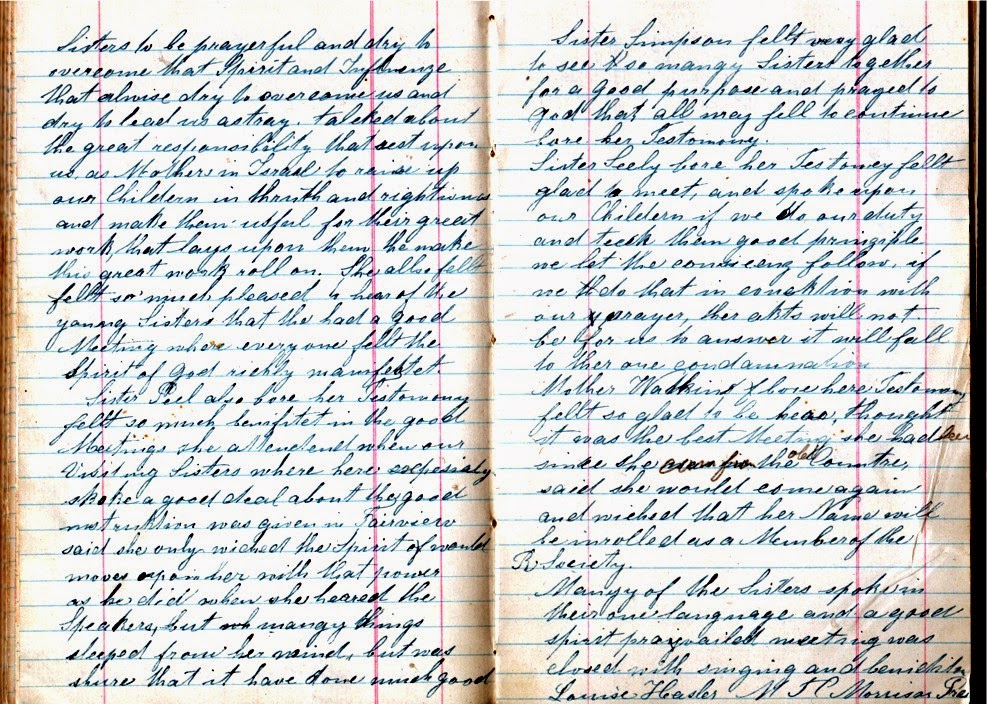 Sisters to be prayerful and dry to
overcome that Spirit and Influenze
that alwise dry to overcome us and
dry to lead us astray. talked about
the great responsibility that rest upon
us as Mothers in Israel to raise up
our Childern in thruth and rightiouns
and make them usful for their great
work, that lays upon them he make
this great work roll on. She allso fellt
fellt so much pleased to hear of the
young Sisters that the had a good
Meeting where everyone felt the
Spirit of god richly manifestet.
Sister Peel also bore her Testomony
fellt so much benifitet in the good
Meetings she attendend when our
Visiting Sisters where here expesialy
spoke a good deal about the good
instruktion was given in Fairview
said she only wiched the Spirit of would
moves upon her with that power
as he did when she heared the
Speakers, but mangy things
sleeped from her mind, but was
shure that it have done much good
Sister Simpson fellt very glad
to see so mangy Sisters together
for a good purpose and prayed to
god that all may fell to continue
bore her Testomony.
Sister Seely bore her Testomey fellt
glad to meet, and spoke upon
our Childern if we do our duty
and teech them good prinsiple
we let the follow, if
we do that in conektion with
our prayer, ther akts will not
be for us to answer it will fall
to ther one condamnation
Mother Watkins bore here Testomony
fellt so glad to be hear, thought
it was the best Meeting she had
since she came from the old Countre,
said she would come again
and wiched that her Name will
be inrolled as a Member of the
R Society.
Mangy of the Sisters spoke in
their one language and a good
spirit prayvailed meeting was
closed with singing and
Louise Hasler M T C Morrison Pres